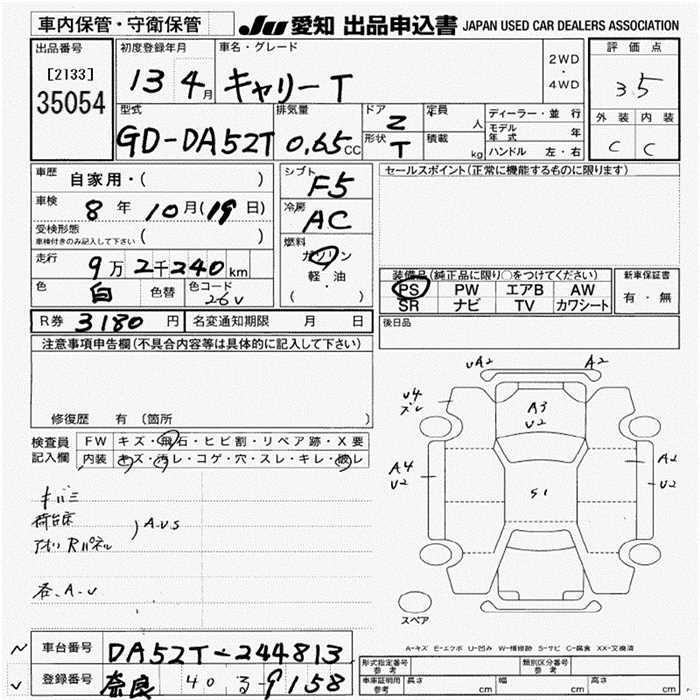 車内保管・守衛保管
JU 愛知 出品申込書 JAPAN USED CAR DEALERS ASSOCIATION
出品番号
[2133]
35054
初度登録年月
13 4月
車名・グレード
キャリーT
2WD
・
4WD
評価点
3.5
外装 内装
C C
型式
GD-DA52T
排気量
0.65CC
ドア
2
形状
T
定員
人
積載
kg
ディーラー・並行
モデル年式 年
ハンドル 左・右
車歴 自家用・( )
車検 8年10月(19日)
受検形態
車検付きのみ記入して下さい ( )
走行 9万2千240km
色 白 色替 色コード 26V
シフト
F5
冷房
AC
燃料
ガソリン
軽・油
( )
セールスポイント(正常に機能するものに限ります)
装備品(純正品に限り○をつけてください)
PS PW エアB AW
SR ナビ TV カワシート
新車保証書
有・無
R券 3180円 名変通知期限 月 日
後日品
注意事項申告欄(不具合内容等は具体的に記入して下さい)
修復歴 有 (箇所 )
検査員
記入欄
FW キズ・飛石・ヒビ割・リペア跡・X要
内装 キズ・汚レ・コゲ・穴・スレ・キレ・破レ
キバミ
荷台床
Rパネル
)A.U.S
各.A.U
UA2 A2
U4
ズレ
A3
U2
A4
U2
S1
A2
U2
スペア
A-キズ E-エクボ U-凹み W-補修跡 S-サビ C-腐食 XX-交換済
車台番号 DA52T-244813
登録番号 奈良 40 る 9158
形式指定番号
参考
類別区分番号
参考
車庫証明用
参考
長さ cm 幅 cm 高さ cm